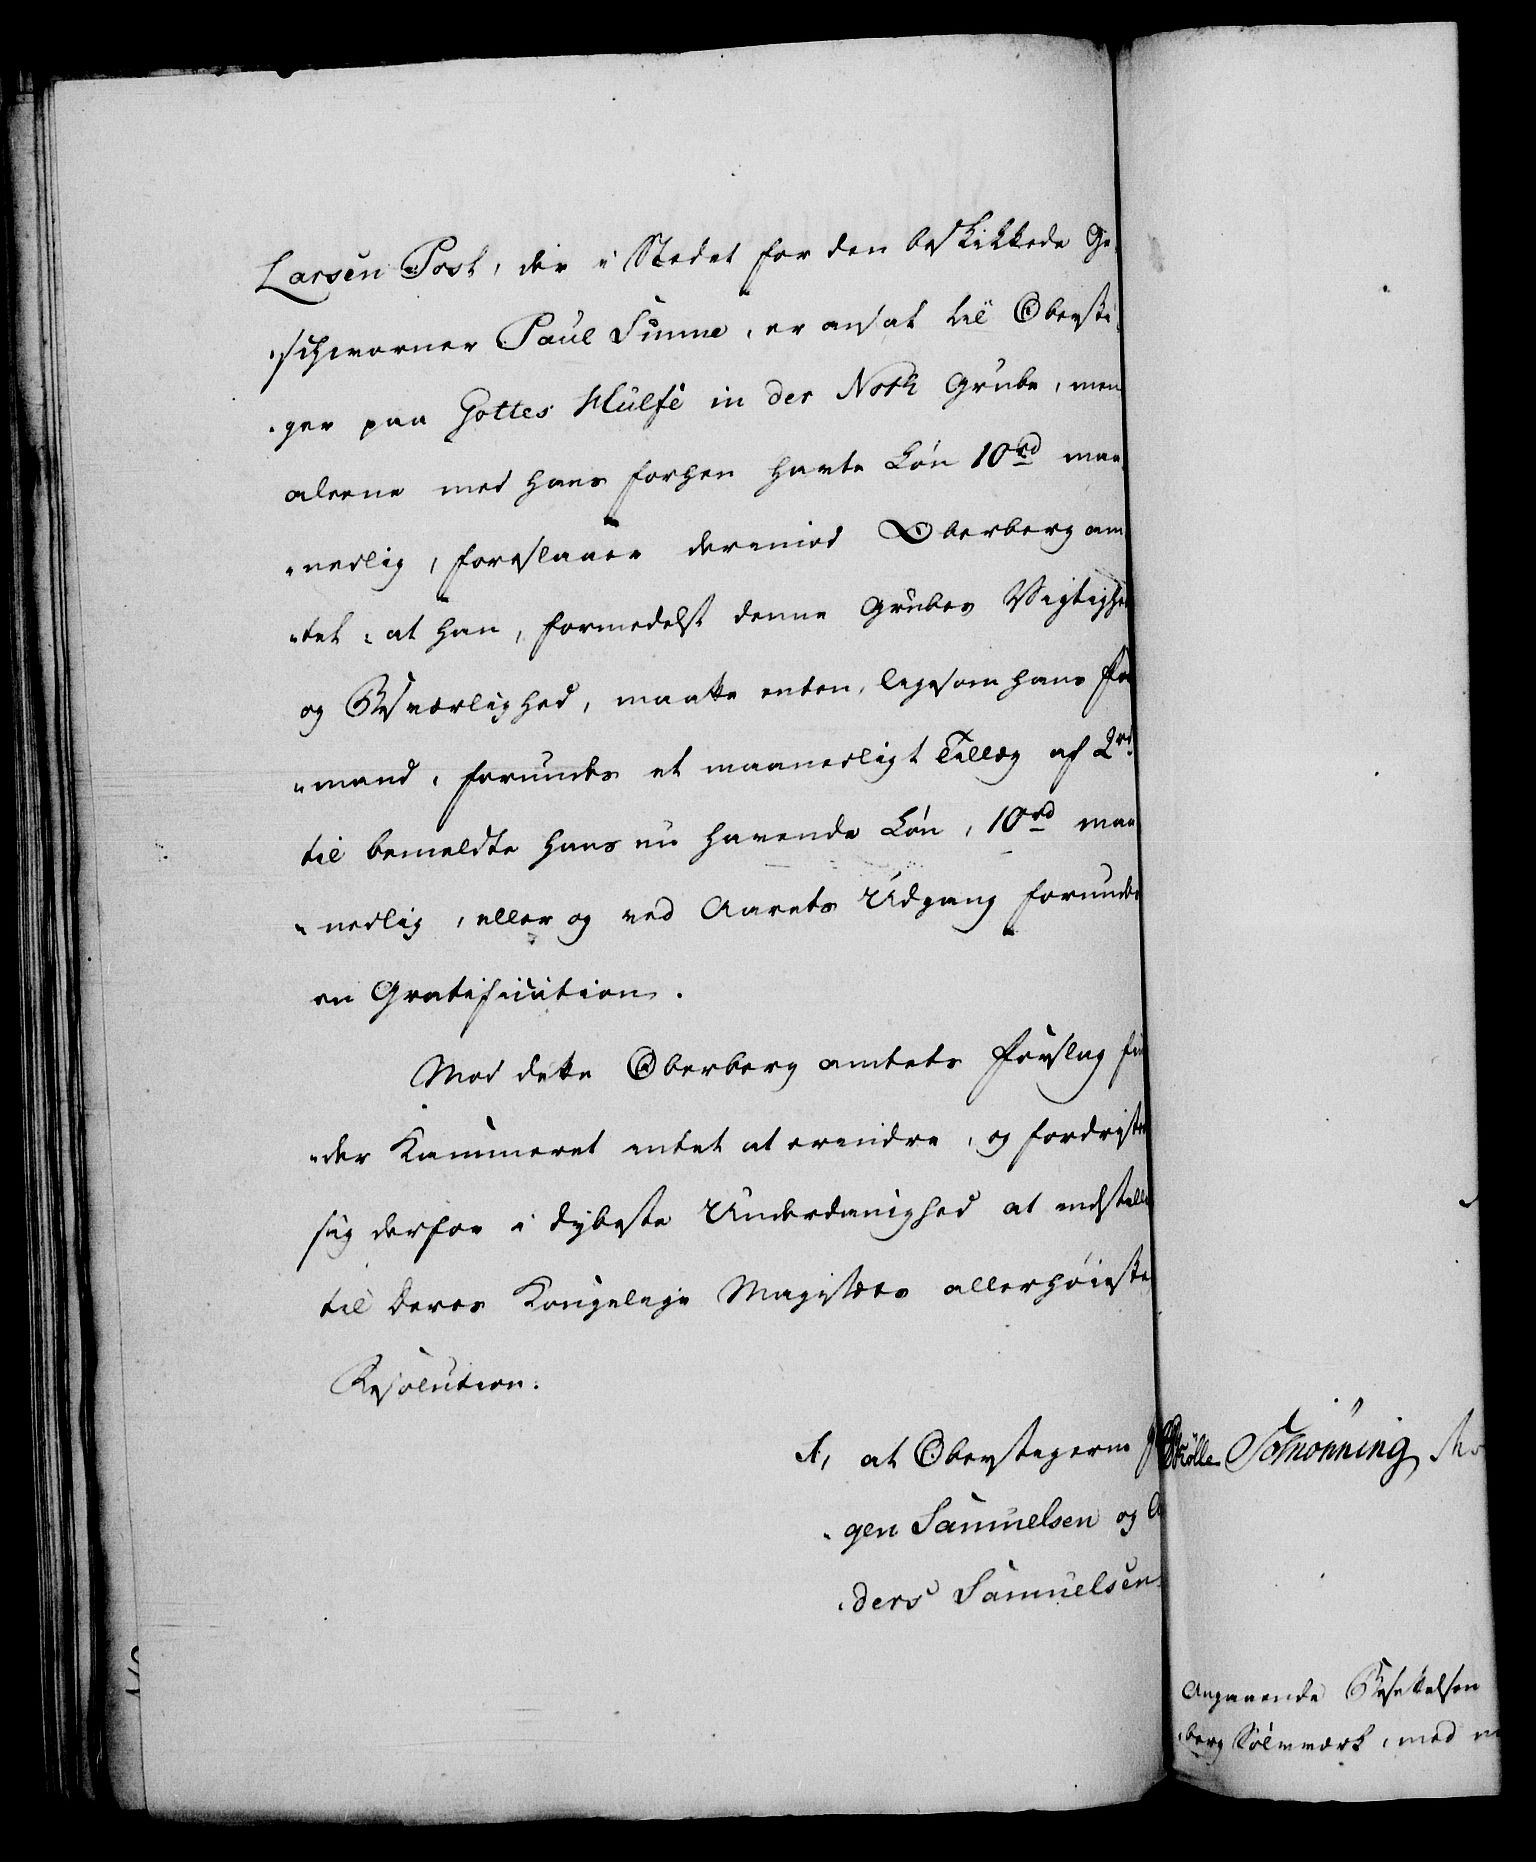 Larsen Post, der i Stedet for den beskikkede Ge-
schworner Paul Sinne, er ansat til Obersti-
ger paa Gottes Hülfe in der Noth Grube, men
alene med hans forhen havte Løn 10 rd maa-
nedlig, foreslaaer derimod Oberbergam-
tet: at han, formedelst denne Grubes Vigtighed
og Besværlighed, maatte enten, ligesom hans For-
mand, forundes et maanedligt Tillæg af 2 rd
til bemeldte hans nu havende Løn, 10 rd maa-
nedlig, eller og ved Aarets Udgang forundes
en Gratification.
Mod dette Oberbergamtets Forslag fin-
der Kammeret intet at erindre, og fordrister
sig derfor i dybeste Underdanighed at indstille
til Deres Kongelige Majestæts allerhøieste
Resolution:
1, at Oberstigerne
gen Samuelsen og
ders Samuelsen
Schønning
Angaaende Besættelsen
berg Sølvværk, med